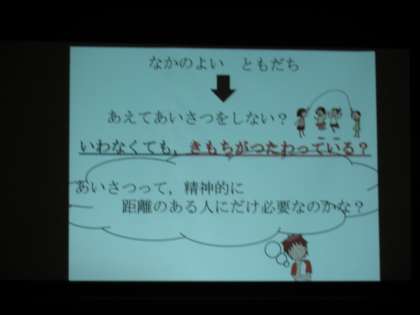 なかのよい　ともだち
あえてあいさつをしない？
いわなくても，きもちがつたわっている？
あいさつって，精神的に
距離のある人にだけ必要なのかな？